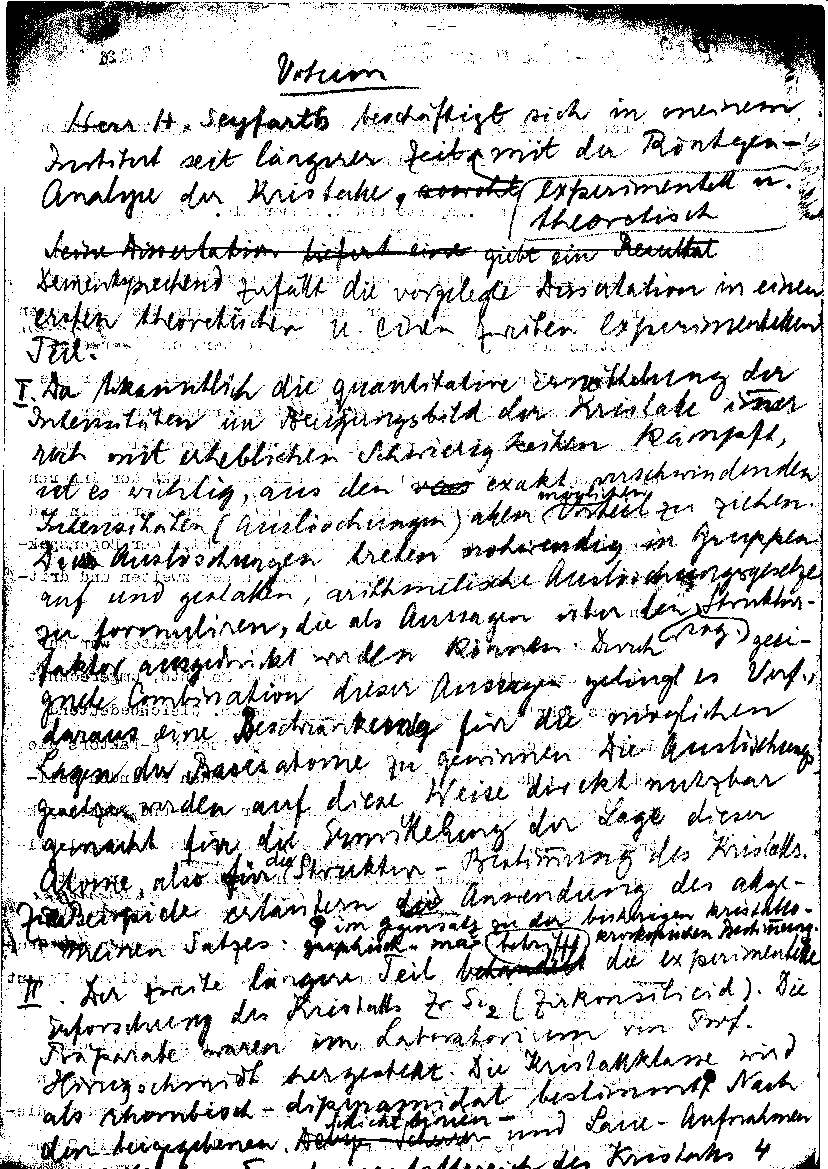 Votum
Herr H. Seyfarth beschäftigt sich in meinem
Institut seit längerer Zeit mit der Röntgen-
Analyse der Kristalle, sowohl experimentell u.
theoretisch
Seine Dissertation liefert eine giebt ein Resultat
Dementsprechend zerfällt die vorgelegte Dissertation in einen
ersten theoretischen u. einen zweiten experimentellen
Teil.
I. Da bekanntlich die quantitative Ermittelung der
Intensitäten im Beugungsbild der Kristalle immer
noch mit erheblichen Schwierigkeiten kämpft,
ist es wichtig, aus den exakt verschwindenden
Intensitäten (Auslöschungen) allen möglichen Vorteil zu ziehen.
Die Auslöschungen treten notwendig in Gruppen
auf und gestatten, arithmetische Auslöschungsgesetze
zu formuliren, die als Aussagen über den Struktur-
faktor ausgedrückt werden können. Durch geei-
gnete Combination dieser Aussagen gelingt es Verf.,
daraus eine Beschränkung für die möglichen
Lagen der Basisatome zu gewinnen. Die Auslöschungs-
gesetze werden auf diese Weise direkt nutzbar
gemacht für die Ermittelung der Lage dieser
Atome, also für die Struktur-Bestimmung des Kristalls.
Beispiele erläutern die Anwendung des allge-
meinen Satzes. im Gegensatz zu der bisherigen
II. Der zweite längere Teil betrifft die experimentelle
Erforschung des Kristalls Zr Si2 (Zirkonsilicid). Die
Präparate waren im Laboratorium von Prof.
Hönigschmidt hergestellt. Die Kristallklasse wird
als rhombisch-dipyramidal bestimmt. Nach
den beigegebenen Schichtlinien- und Laue-Aufnahmen
des Kristalls 4